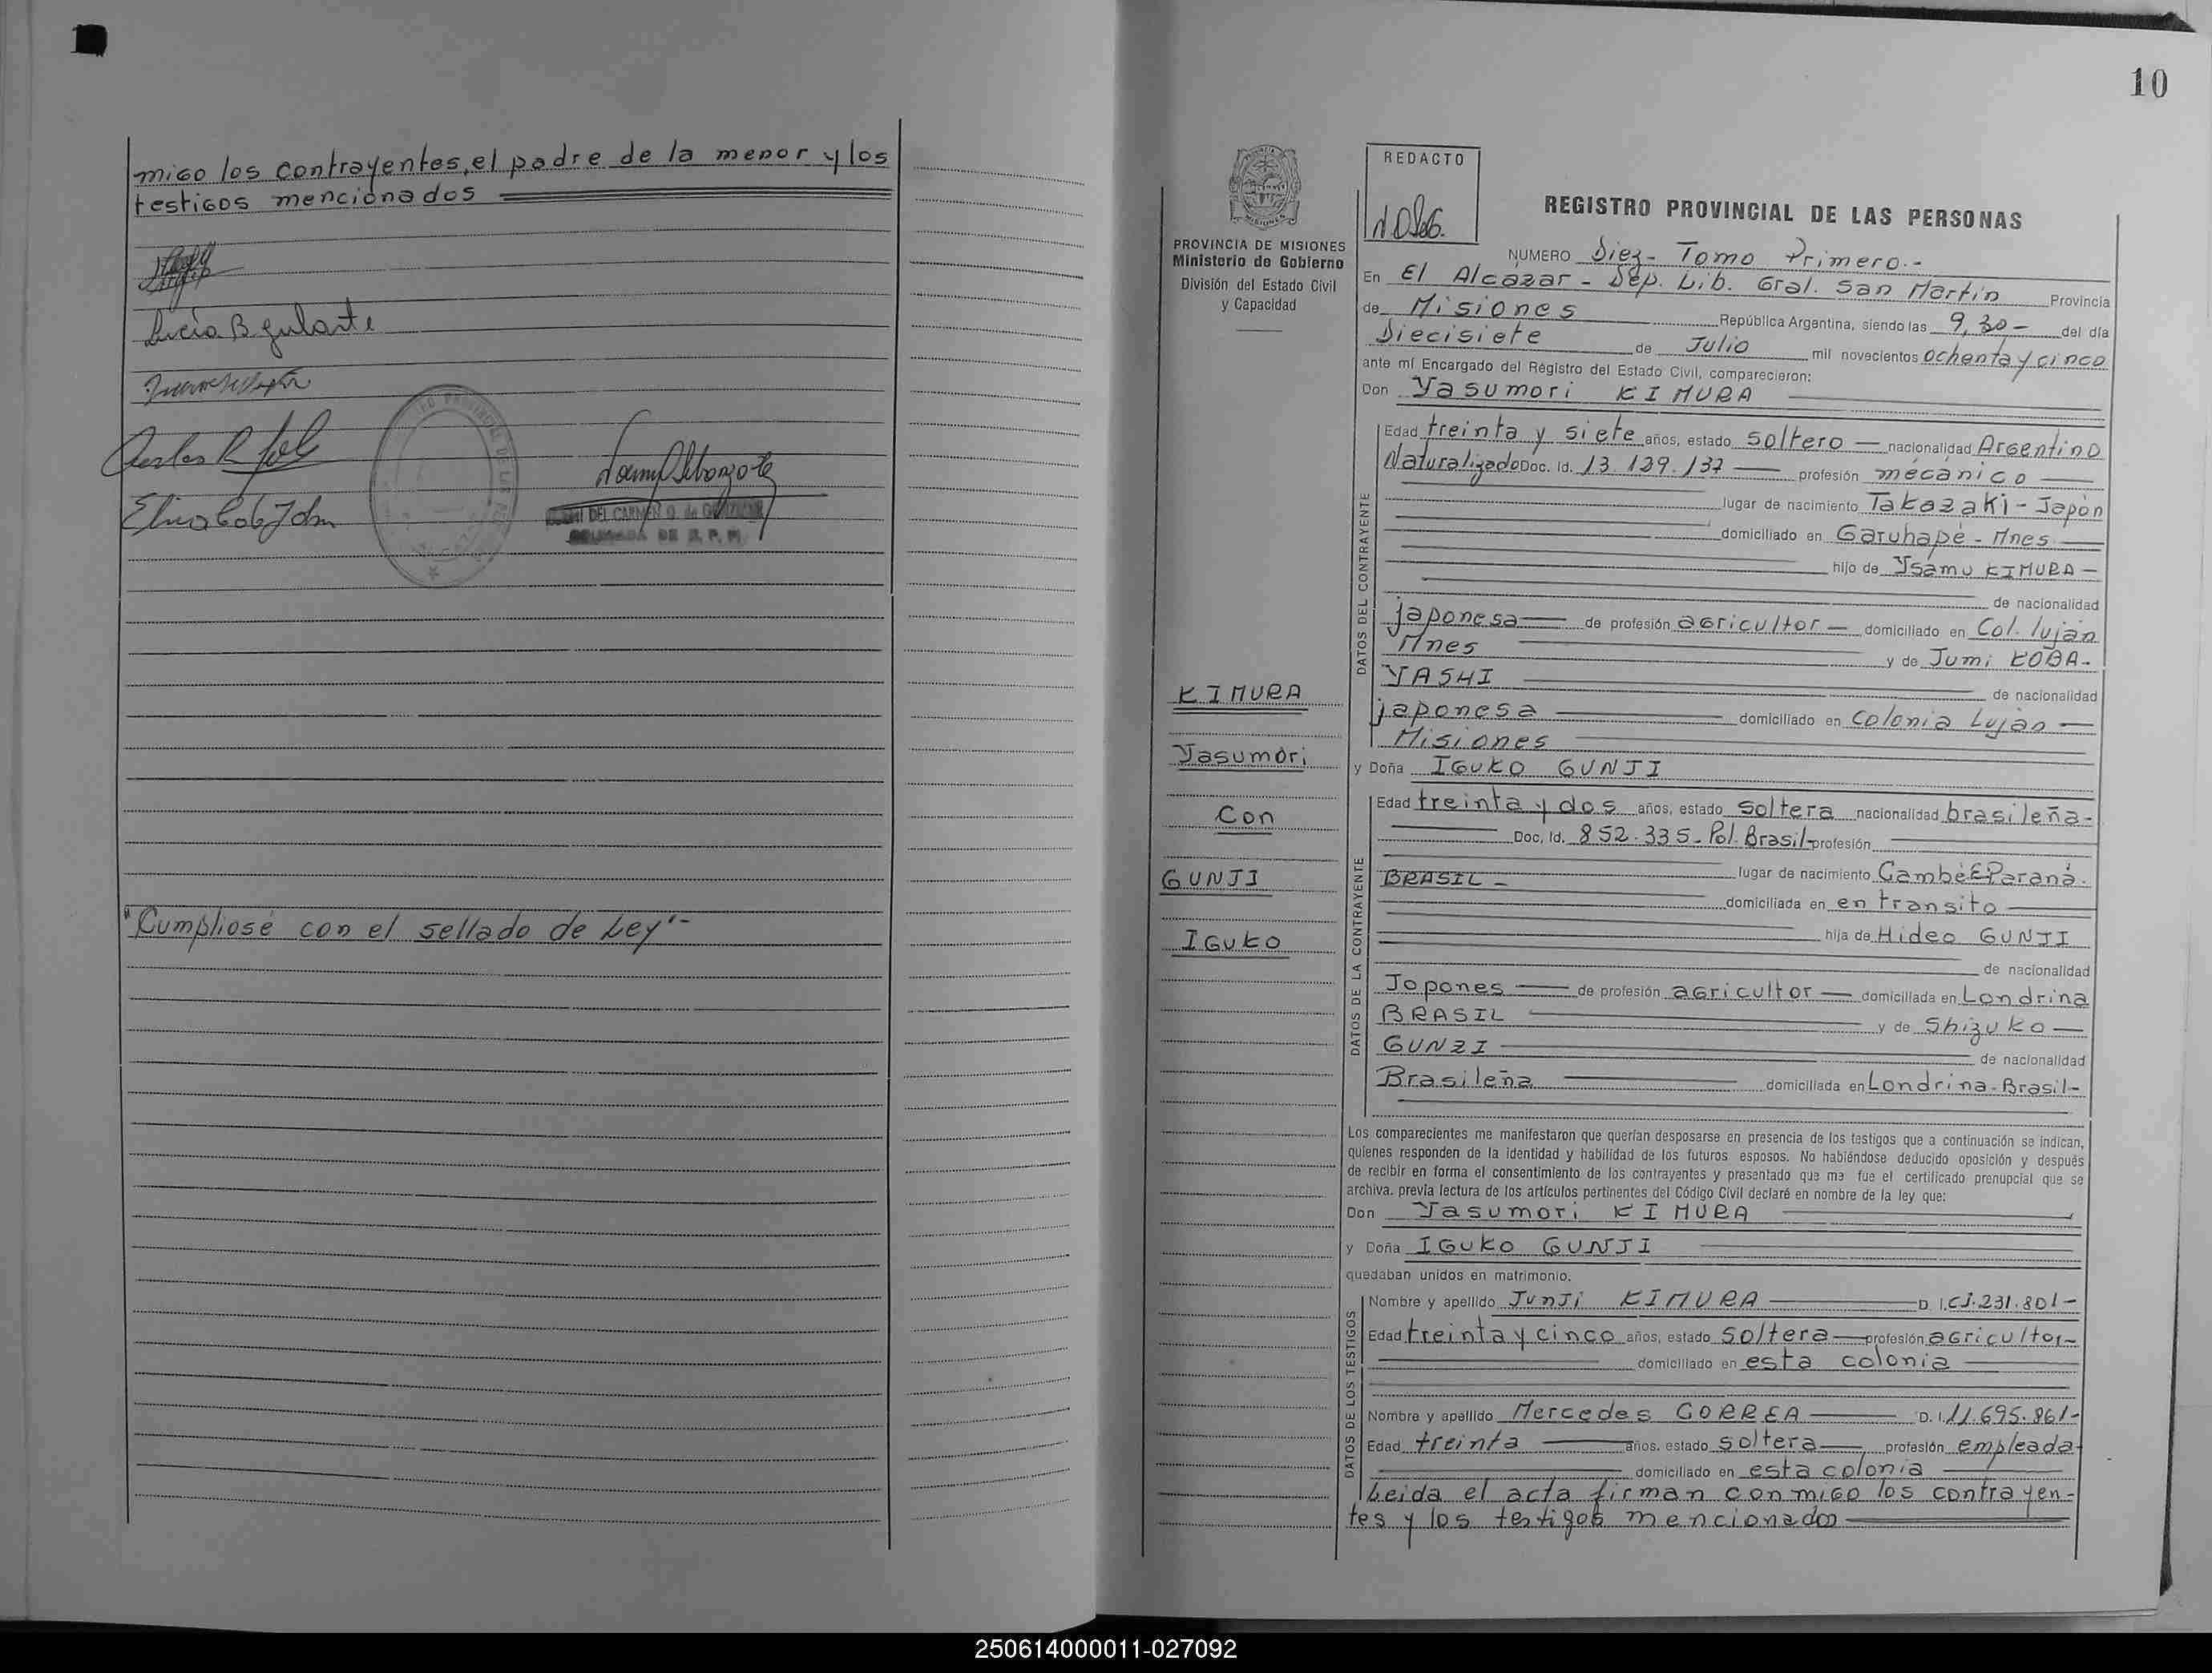 migo los contrayentes, el padre de la menor y los
testigos mencionados
Lucía B Gularte
"Cumpliose con el sellado de Ley"-
10
REDACTO
PROVINCIA DE MISIONES
Ministerio de Gobierno
División del Estado Civil
y Capacidad
REGISTRO PROVINCIAL DE LAS PERSONAS
NUMERO Diez- Tomo Primero.-
En El Alcázar - Dep. Lib. Gral. San Martin Provincia
de Misiones República Argentina, siendo las 9,30- del día
Diecisiete de Julio mil novecientos ochenta y cinco
ante mí Encargado del Registro del Estado Civil, comparecieron:
Don Yasumori KIMURA
DATOS DEL CONTRAYENTE
Edad treinta y siete años, estado soltero nacionalidad Argentino
Naturalizado Doc. Id. 13.129.137 profesión mecánico
lugar de nacimiento Takazaki - Japón
domiciliado en Garuhapé - Mnes.
hijo de Ysamu KIMURA
de nacionalidad
japonesa de profesión agricultor domiciliado en Col. luján
Mnes y de Jumi KOBA-
YASHI de nacionalidad
japonesa domiciliado en Colonia Luján
Misiones
y Doña IGUKO GUNJI
DATOS DE LA CONTRAYENTE
Edad treinta y dos años, estado soltera nacionalidad brasileña-
Doc. Id. 852.335- Pol. Brasil- profesión
BRASIL - lugar de nacimiento Cambé E. Paraná.
domiciliada en en transito
hija de Hideo GUNJI
de nacionalidad
Jopones de profesión agricultor domiciliada en Londrina
BRASIL y de Shizuko
GUNZI de nacionalidad
Brasileña domiciliada en Londrina - Brasil-
KIMURA
Yasumori
Con
GUNJI
IGUKO
Los comparecientes me manifestaron que querían desposarse en presencia de los testigos que a continuación se indican,
quienes responden de la identidad y habilidad de los futuros esposos. No habiéndose deducido oposición y después
de recibir en forma el consentimiento de los contrayentes y presentado que me fue el certificado prenupcial que se
archiva. previa lectura de los artículos pertinentes del Código Civil declaré en nombre de la ley que:
Don Yasumori KIMURA
y Doña IGUKO GUNJI
quedaban unidos en matrimonio.
DATOS DE LOS TESTIGOS
Nombre y apellido Junji KIMURA D. I. C.I. 231.801-
Edad treinta y cinco años, estado soltera profesión agricultor-
domiciliado en esta colonia
Nombre y apellido Mercedes CORREA D. I. 11.695.861-
Edad treinta años. estado soltera profesión empleada
domiciliado en esta colonia
Leida el acta firman conmigo los contrayen-
tes y los testigos mencionados
250614000011-027092